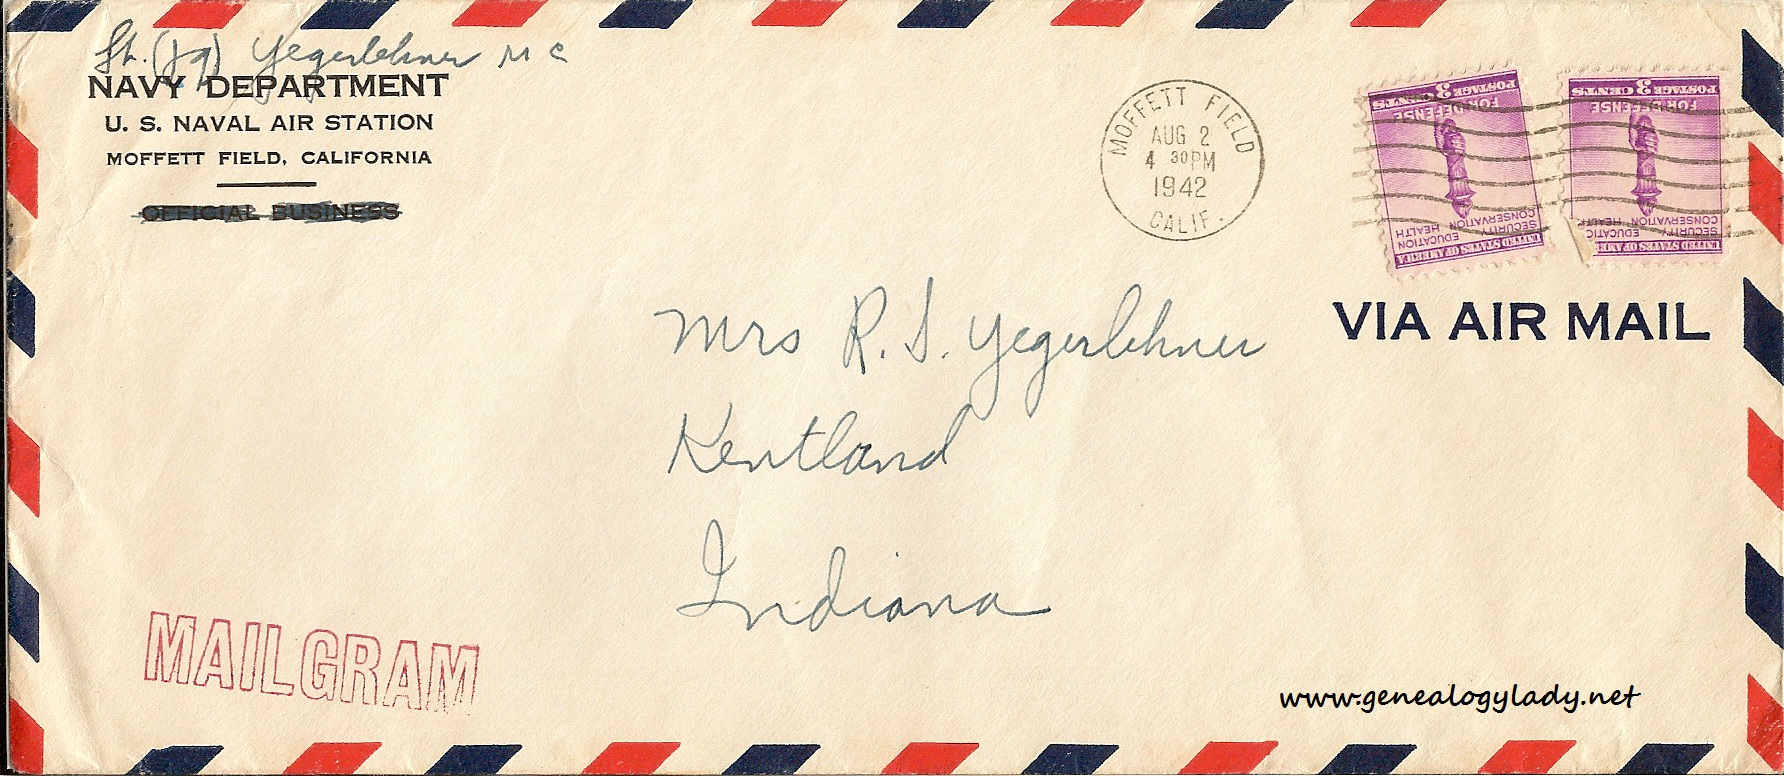 Lt. (jg) Yegerlehner M C
NAVY DEPARTMENT
U. S. NAVAL AIR STATION
MOFFETT FIELD, CALIFORNIA
OFFICIAL BUSINESS
MOFFETT FIELD
AUG 2
4 30 PM
1942
CALIF.
POSTAGE 3 CENTS
FOR DEFENSE
SECURITY EDUCATION
CONSERVATION HEALTH
UNITED STATES OF AMERICA
POSTAGE 3 CENTS
FOR DEFENSE
SECURITY EDUCATIO
CONSERVATION HEALTH
UNITED STATES OF AMER
VIA AIR MAIL
Mrs R. S. Yegerlehner
Kentland
Indiana
MAILGRAM
www.genealogylady.net